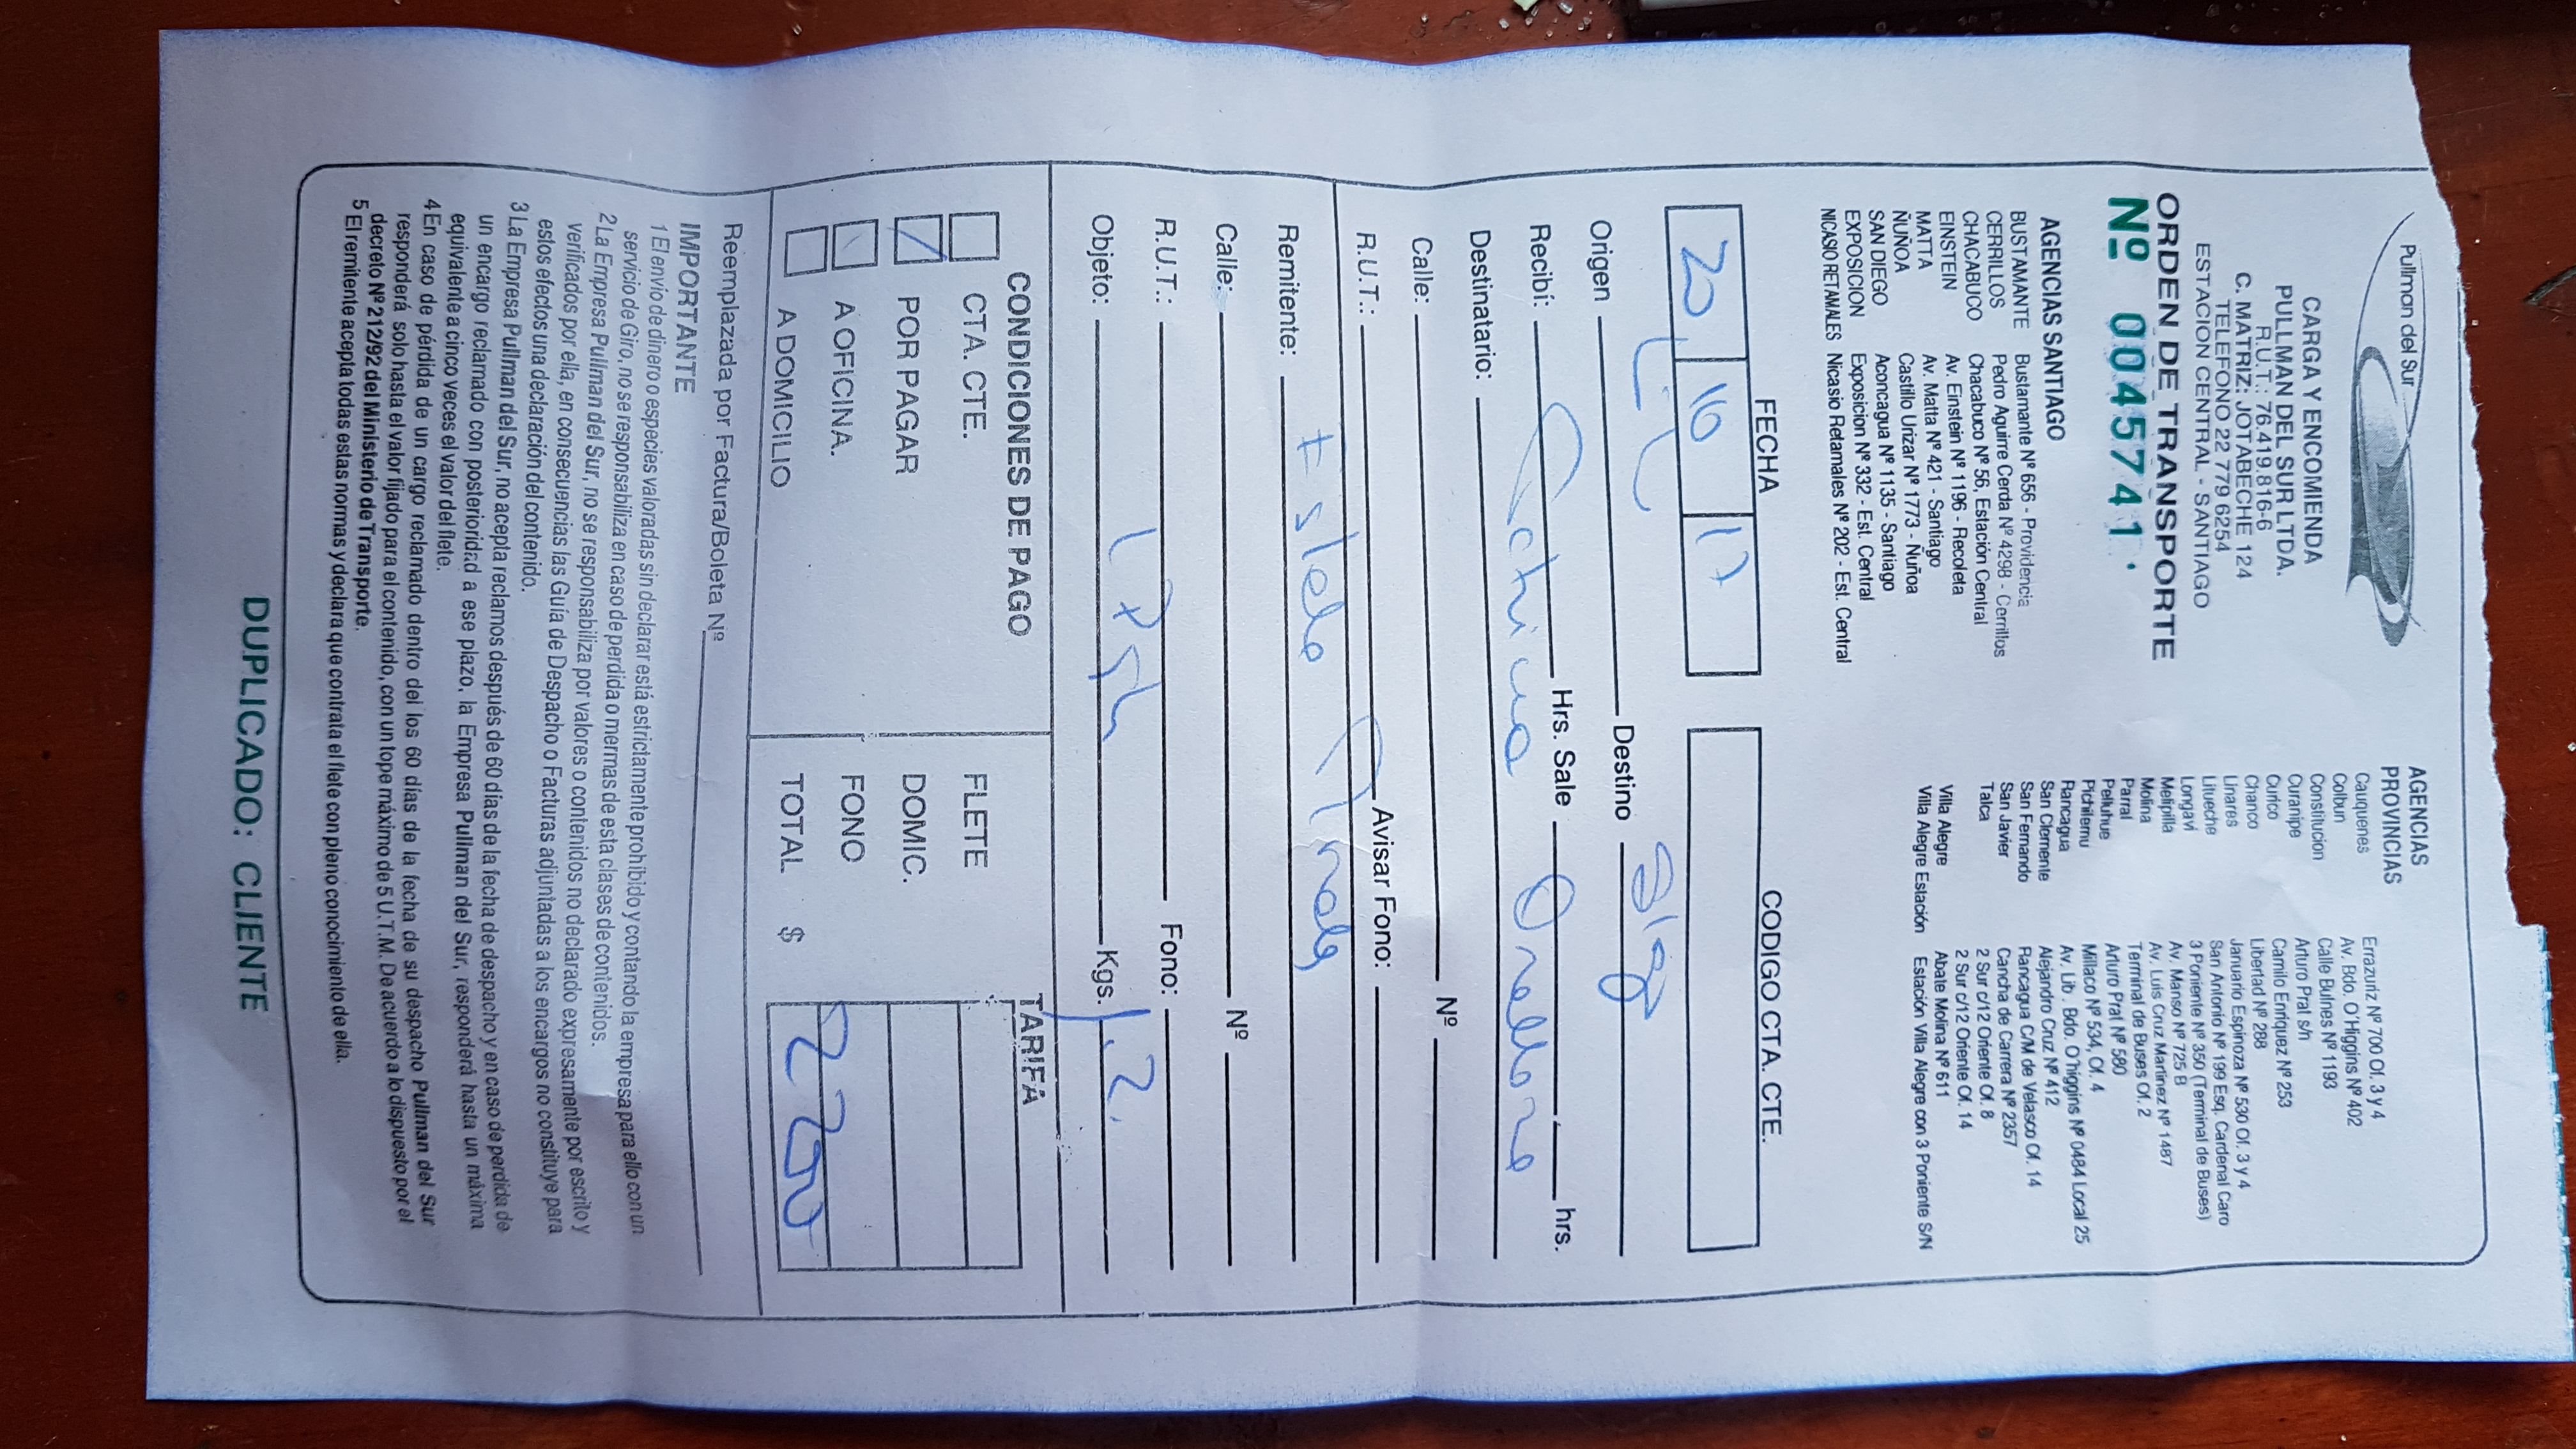 Pullman del Sur
CARGA Y ENCOMIENDA
PULLMAN DEL SUR LTDA.
R.U.T.: 76.419.816-6
C. MATRIZ: JOTABECHE 124
TELEFONO 22 779 6254
ESTACION CENTRAL - SANTIAGO
ORDEN DE TRANSPORTE
Nº 0045741
AGENCIAS SANTIAGO
BUSTAMANTE Bustamante Nº 656 - Providencia
CERRILLOS Pedro Aguirre Cerda Nº 4298 - Cerrillos
CHACABUCO Chacabuco Nº 56, Estación Central
EINSTEIN Av. Einstein Nº 1196 - Recoleta
MATTA Av. Matta Nº 421 - Santiago
ÑUÑOA Castillo Urizar Nº 1773 - Ñuñoa
SAN DIEGO Aconcagua Nº 1135 - Santiago
EXPOSICION Exposicion Nº 332 - Est. Central
NICASIO RETAMALES Nicasio Retamales Nº 202 - Est. Central
AGENCIAS
PROVINCIAS
Cauquenes Errazuriz Nº 700 Of. 3 y 4
Colbun Av. Bdo. O'Higgins Nº 402
Constitucion Calle Bulnes Nº 1193
Curanipe Arturo Prat s/h
Curico Camilo Enriquez Nº 253
Chanco Libertad Nº 288
Linares Januario Espinoza Nº 530 Of. 3 y 4
Litueche San Antonio Nº 199 Esq. Cardenal Caro
Longavi 3 Poniente Nº 350 (Terminal de Buses)
Melipilla Av. Manso Nº 725 B
Molina Av. Luis Cruz Martinez Nº 1487
Parral Terminal de Buses Of. 2
Pelluhue Arturo Prat Nº 580
Pichilemu Millaco Nº 534, Of. 4
Rancagua Av. Lib. Bdo. O'higgins Nº 0484 Local 25
San Clemente Alejandro Cruz Nº 412
San Fernando Rancagua C/M de Velasco Of. 14
San Javier Cancha de Carrera Nº 2357
Talca 2 Sur c/12 Oriente Of. 8
2 Sur c/12 Oriente Of. 14
Villa Alegre Abate Molina Nº 611
Villa Alegre Estación Estación Villa Alegre con 3 Poniente S/N
FECHA
CODIGO CTA. CTE.
20 10 17
Origen Destino Stgo
Recibí: Hrs. Sale hrs.
Destinatario: Orellana
Calle: Nº
R.U.T.: Avisar Fono:
Remitente:
Calle: Nº
R.U.T.: Fono:
Objeto: 1 Kgs. 1.2.
CONDICIONES DE PAGO
TARIFA
CTA. CTE. FLETE
POR PAGAR DOMIC.
A OFICINA. FONO
A DOMICILIO TOTAL $ 2200
Reemplazada por Factura/Boleta Nº
IMPORTANTE
1 El envio de dinero o especies valoradas sin declarar está estrictamente prohibido y contando la empresa para ello con un
servicio de Giro, no se responsabiliza en caso de perdida o mermas de esta clases de contenidos.
2 La Empresa Pullman del Sur, no se responsabiliza por valores o contenidos no declarado expresamente por escrito y
verificados por ella, en consecuencias las Guía de Despacho o Facturas adjuntadas a los encargos no constituye para
estos efectos una declaración del contenido.
3 La Empresa Pullman del Sur, no acepta reclamos después de 60 días de la fecha de despacho y en caso de perdida de
un encargo reclamado con posterioridad a ese plazo, la Empresa Pullman del Sur, responderá hasta un máxima
equivalente a cinco veces el valor del flete.
4 En caso de pérdida de un cargo reclamado dentro del los 60 días de la fecha de su despacho Pullman del Sur
responderá solo hasta el valor fijado para el contenido, con un tope máximo de 5 U.T.M. De acuerdo a lo dispuesto por el
decreto Nº 212/92 del Ministerio de Transporte.
5 El remitente acepta todas estas normas y declara que contrata el flete con pleno conocimiento de ella.
DUPLICADO: CLIENTE